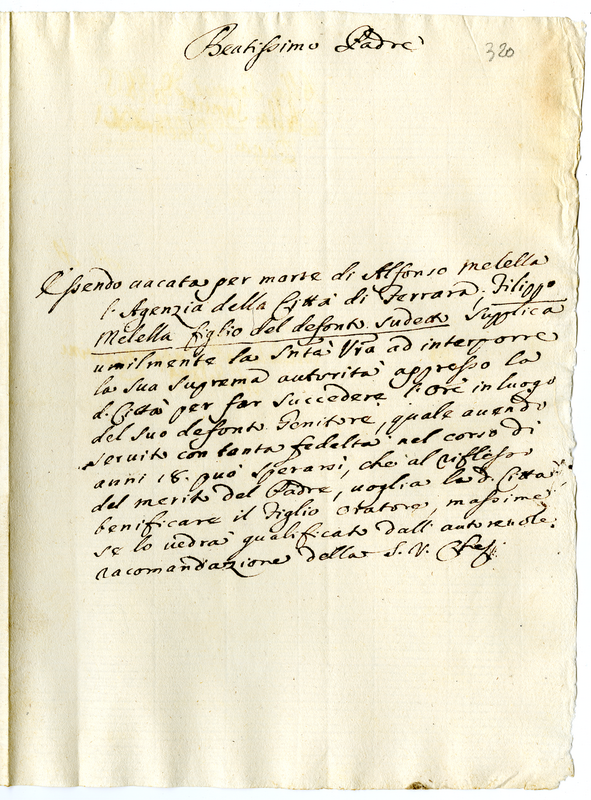 Beatissimo Padre
320
Essendo vacata per morte di Alfonso Melella
l'Agenzia della Città di Ferrara, Filippo
Melella figlio del defonto sudetto supplica
umilmente la Sntà Vra ad interporre
la sua suprema autorità appresso la
d. Città per far succedere l'Ore in luogo
del suo defonto Genitore, quale avendo
servito con tanta fedeltà nel corso di
anni 18. può sperarsi, che al riflesso
del merito del Padre, voglia la d. Città
benificare il Figlio Oratore, massime
se lo vedrà qualificato dall' autorevole
racomandazione della S. V. Che